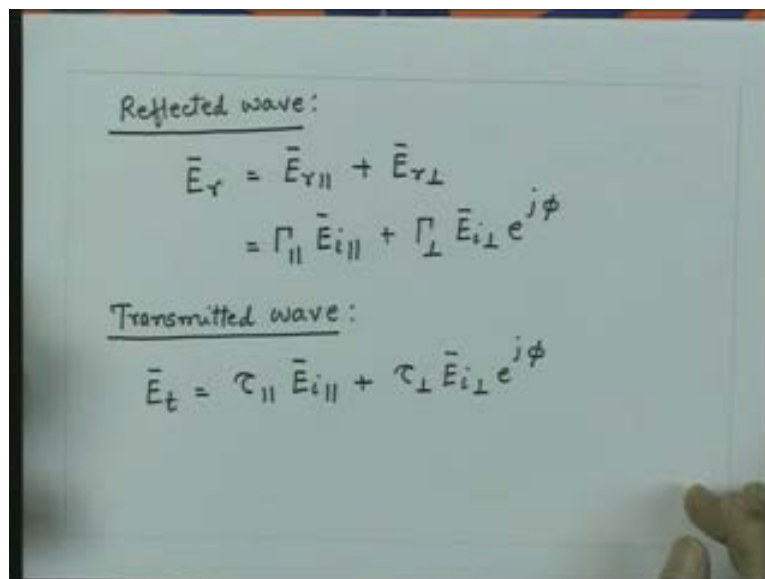 Reflected wave:
Ēᵣ = Ēᵣ∥ + Ēᵣ⊥
= Γ∥ Ēᵢ∥ + Γ⊥ Ēᵢ⊥ e^{jφ}
Transmitted wave:
Ēₜ = τ∥ Ēᵢ∥ + τ⊥ Ēᵢ⊥ e^{jφ}